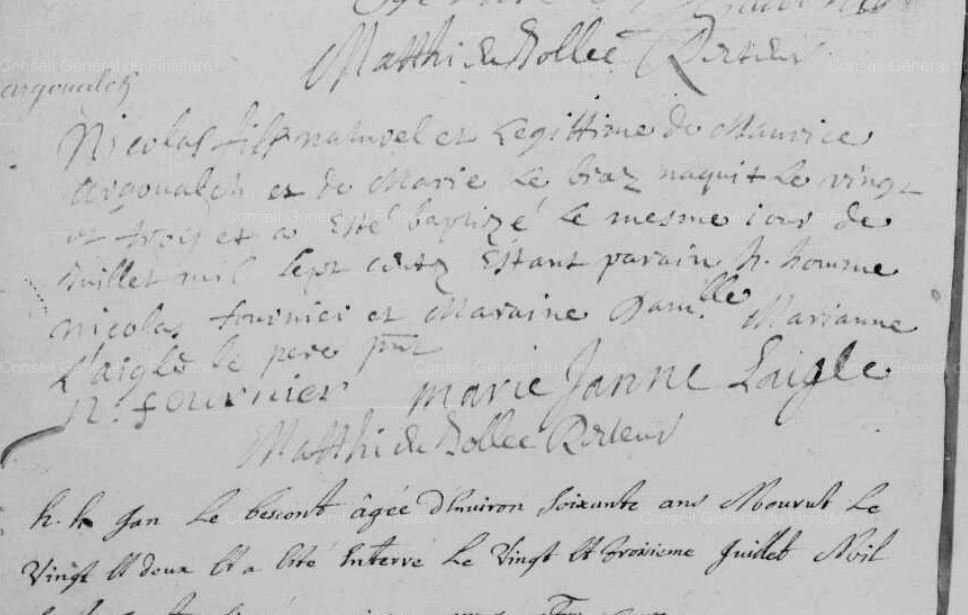 Matthieu Dollec Recteur
argoualch
Nicolas fils naturel et Legittime de Maurice
argoualch et de Marie Le braz naquit Le vingt
et trois et a Esté baptizé Le mesme iour de
Juillet mil sept cents Estant parain h. homme
Nicolas fournier et Maraine Dam.lle Marianne
L'aigle le pere pnt
N. fournier marie Janne Laigle
Matthieu Dollec Recteur
h. h Jan Le bescont âgée D'Environ Soixante ans Mourut Le
Vingt Et deux Et a Esté Enterré Le Vingt Et troisieme Juillet Mil
Conseil Général du Finistère